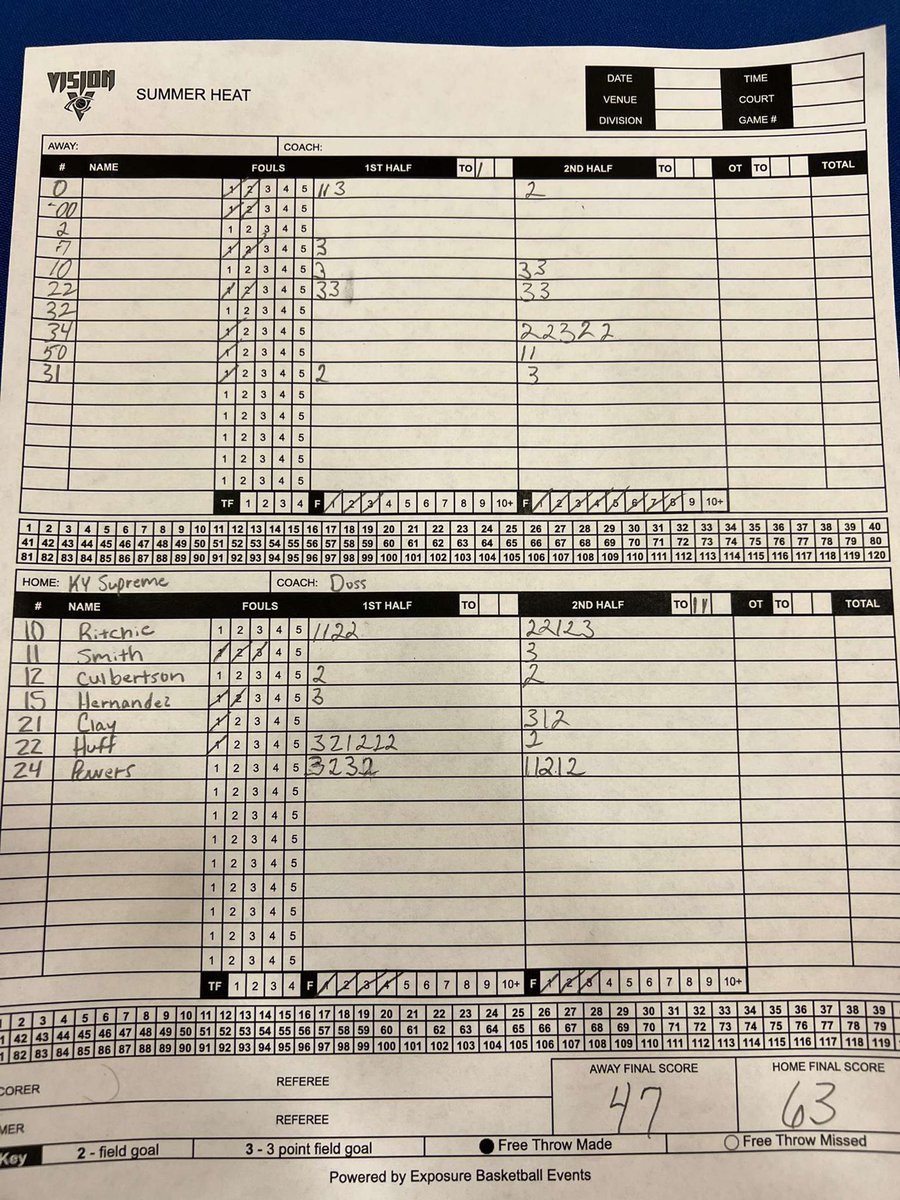 VISION SUMMER HEAT
DATE TIME
VENUE COURT
DIVISION GAME #
AWAY: COACH:
# NAME FOULS 1ST HALF TO / 2ND HALF TO OT TO TOTAL
0 1 2 3 4 5 113 2
00 1 2 3 4 5
2 1 2 3 4 5
7 1 2 3 4 5 3
10 1 2 3 4 5 3 33
22 1 2 3 4 5 33 33
32 1 2 3 4 5
34 1 2 3 4 5 22322
50 1 2 3 4 5 11
31 1 2 3 4 5 2 3
1 2 3 4 5
1 2 3 4 5
1 2 3 4 5
1 2 3 4 5
1 2 3 4 5
TF 1 2 3 4 F 1 2 3 4 5 6 7 8 9 10+ F 1 2 3 4 5 6 7 8 9 10+
1 2 3 4 5 6 7 8 9 10 11 12 13 14 15 16 17 18 19 20 21 22 23 24 25 26 27 28 29 30 31 32 33 34 35 36 37 38 39 40
41 42 43 44 45 46 47 48 49 50 51 52 53 54 55 56 57 58 59 60 61 62 63 64 65 66 67 68 69 70 71 72 73 74 75 76 77 78 79 80
81 82 83 84 85 86 87 88 89 90 91 92 93 94 95 96 97 98 99 100 101 102 103 104 105 106 107 108 109 110 111 112 113 114 115 116 117 118 119 120
HOME: KY Supreme COACH: Doss
# NAME FOULS 1ST HALF TO 2ND HALF TO 11 OT TO TOTAL
10 Ritchie 1 2 3 4 5 1122 22123
11 Smith 1 2 3 4 5 3
12 Culbertson 1 2 3 4 5 2 2
15 Hernandez 1 2 3 4 5 3
21 Clay 1 2 3 4 5 312
22 Huff 1 2 3 4 5 321222 2
24 Powers 1 2 3 4 5 3232 11212
1 2 3 4 5
1 2 3 4 5
1 2 3 4 5
1 2 3 4 5
1 2 3 4 5
1 2 3 4 5
1 2 3 4 5
1 2 3 4 5
TF 1 2 3 4 F 1 2 3 4 5 6 7 8 9 10+ F 1 2 3 4 5 6 7 8 9 10+
1 2 3 4 5 6 7 8 9 10 11 12 13 14 15 16 17 18 19 20 21 22 23 24 25 26 27 28 29 30 31 32 33 34 35 36 37 38 39
1 42 43 44 45 46 47 48 49 50 51 52 53 54 55 56 57 58 59 60 61 62 63 64 65 66 67 68 69 70 71 72 73 74 75 76 77 78 79
1 82 83 84 85 86 87 88 89 90 91 92 93 94 95 96 97 98 99 100 101 102 103 104 105 106 107 108 109 110 111 112 113 114 115 116 117 118 119
CORER REFEREE AWAY FINAL SCORE HOME FINAL SCORE
MER REFEREE 47 63
Key 2 - field goal 3 - 3 point field goal Free Throw Made Free Throw Missed
Powered by Exposure Basketball Events